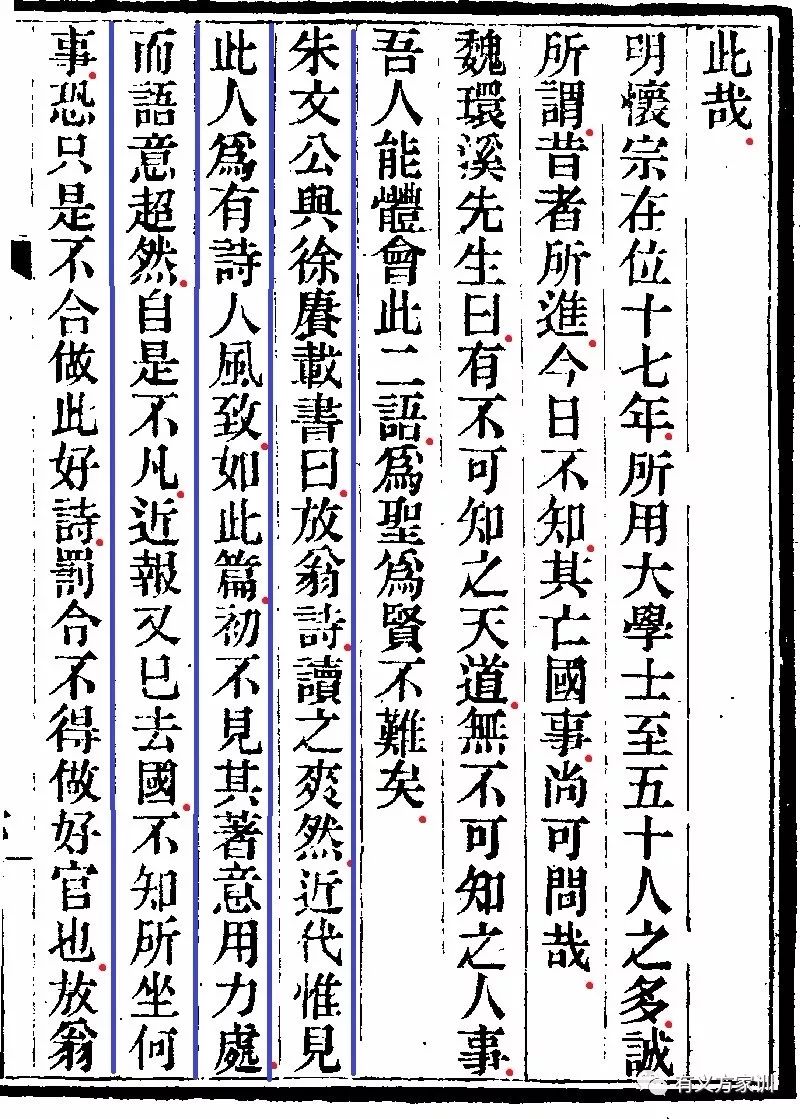 此哉
明懷宗在位十七年所用大學士至五十人之多誠
所謂昔者所進今日不知其亡國事尚可問哉
魏環溪先生曰有不可知之天道無不可知之人事
吾人能體會此二語爲聖爲賢不難矣
朱文公與徐賡載書曰放翁詩讀之爽然近代惟見
此人爲有詩人風致如此篇初不見其著意用力處
而語意超然自是不凡近報又已去國不知所坐何
事恐只是不合做此好詩罰合不得做好官也放翁
有义方家训